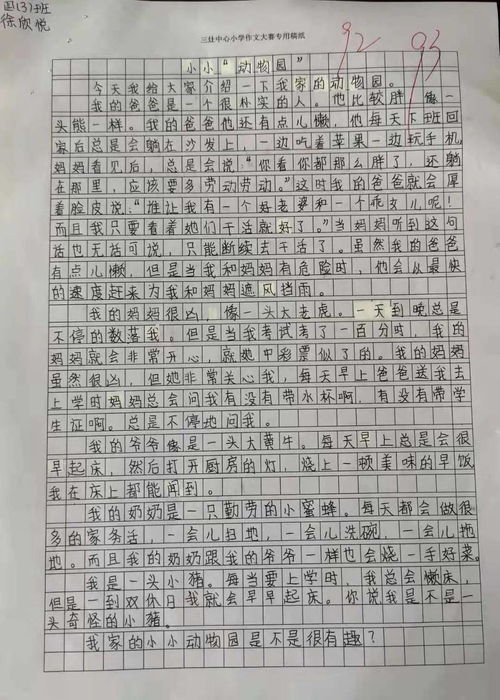 四(3)班
徐欣悦
三灶中心小学作文大赛专用稿纸
92 93
小小“动物园”
今天我给大家介绍一下我家的动物园。
我的爸爸是一个很朴实的人。他比较胖，像一
头熊一样。我的爸爸他还有点儿懒，他每天下班回
家后总是会躺在沙发上，一边吃着苹果一边玩手机，
妈妈看见后，总是会说：“你看你都那么胖了，还躺
在那里，应该要多劳动劳动。”这时我的爸爸就会厚
着脸皮说：“谁让我有一个好老婆和一个乖女儿呢！
而且我只要看着她们干活就好了。”当妈妈听到这句
话也无话可说，只能断续去干活了。虽然我的爸爸
有点儿懒，但是当我和妈妈有危险时，他会以最快
的速度赶来为我和妈妈遮风挡雨。
我的妈妈很凶，像一头大老虎。一天到晚总是
不停的数落我。但是当我考试考了一百分时，我的
妈妈就会非常开心，就她中彩票似了的。我的妈妈
虽然很凶，但她非常关心我，每天早上爸爸送我去
上学时妈妈总会问我有没有带水杯啊，有没有带学
生证啊。总是不停地问我。
我的爷爷像是一头大黄牛。每天早上总是会很
早起床，然后打开厨房的灯，烧上一顿美味的早饭
我在床上都能闻到。
我的奶奶是一只勤劳的小蜜蜂。每天都会做很
多的家务活，一会儿扫地，一会儿洗碗，一会儿拖
地。而且我的奶奶跟我的爷爷一样也会烧一手好菜。
我是一头小猪。每当要上学时，我总会懒床，
但是一到双休日我就会早早起床。你说我是不是一
头奇怪的小猪。
我家的小小动物园是不是很有趣？